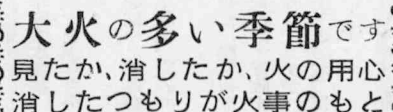 大火の多い季節です
見たか、消したか、火の用心
消したつもりが火事のもと